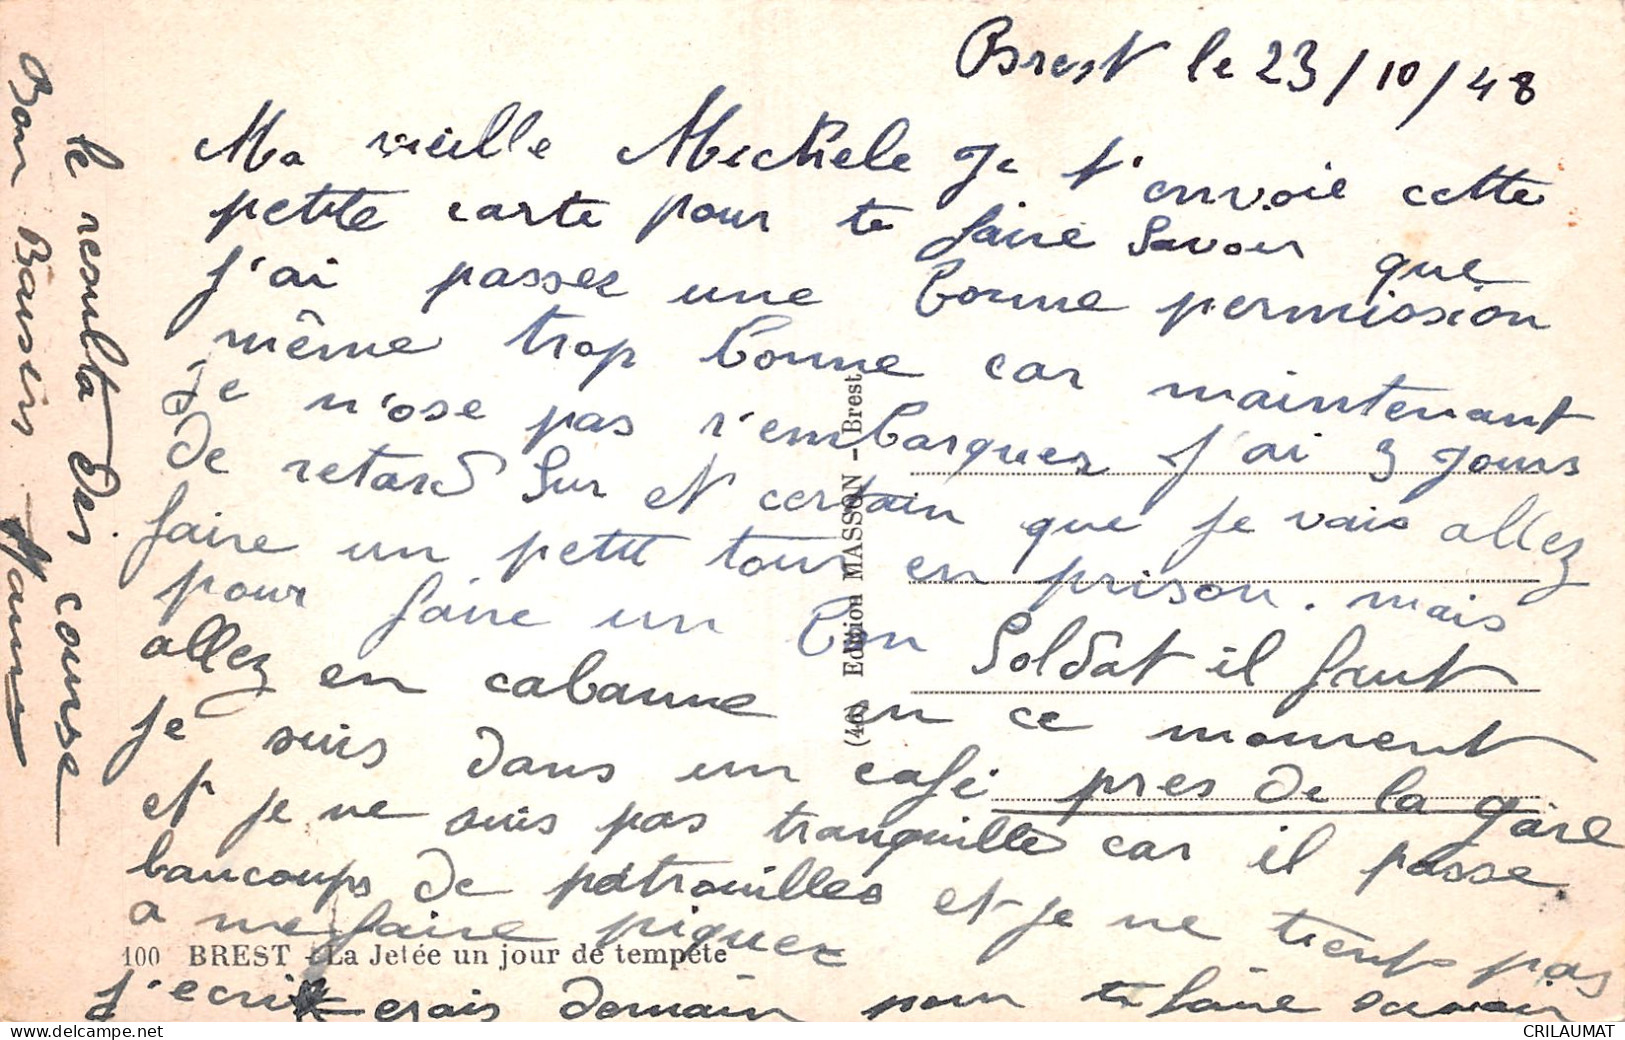 Brest le 23/10/48
Ma vieille Michele Je t'envoie cette
petite carte pour te faire savoir que
j'ai passee une bonne permission
même trop bonne car maintenant
Je n'ose pas r'embarquer j'ai 3 jours
de retard sur et certain que je vais allez
faire un petit tour en prison. mais
pour faire un bon Soldat il faut
allez en cabanne en ce moment
je suis dans un café près de la gare
et je ne suis pas tranquille car il passe
baucoups de patrouilles et je ne tient pas
a me faire piquez
j'ecrirerais demain pour te faire savoir
le resulta des course
Bon Baisers
(40) Edition MASSON - Brest
100 BREST - La Jetée un jour de tempête
CRILAUMAT